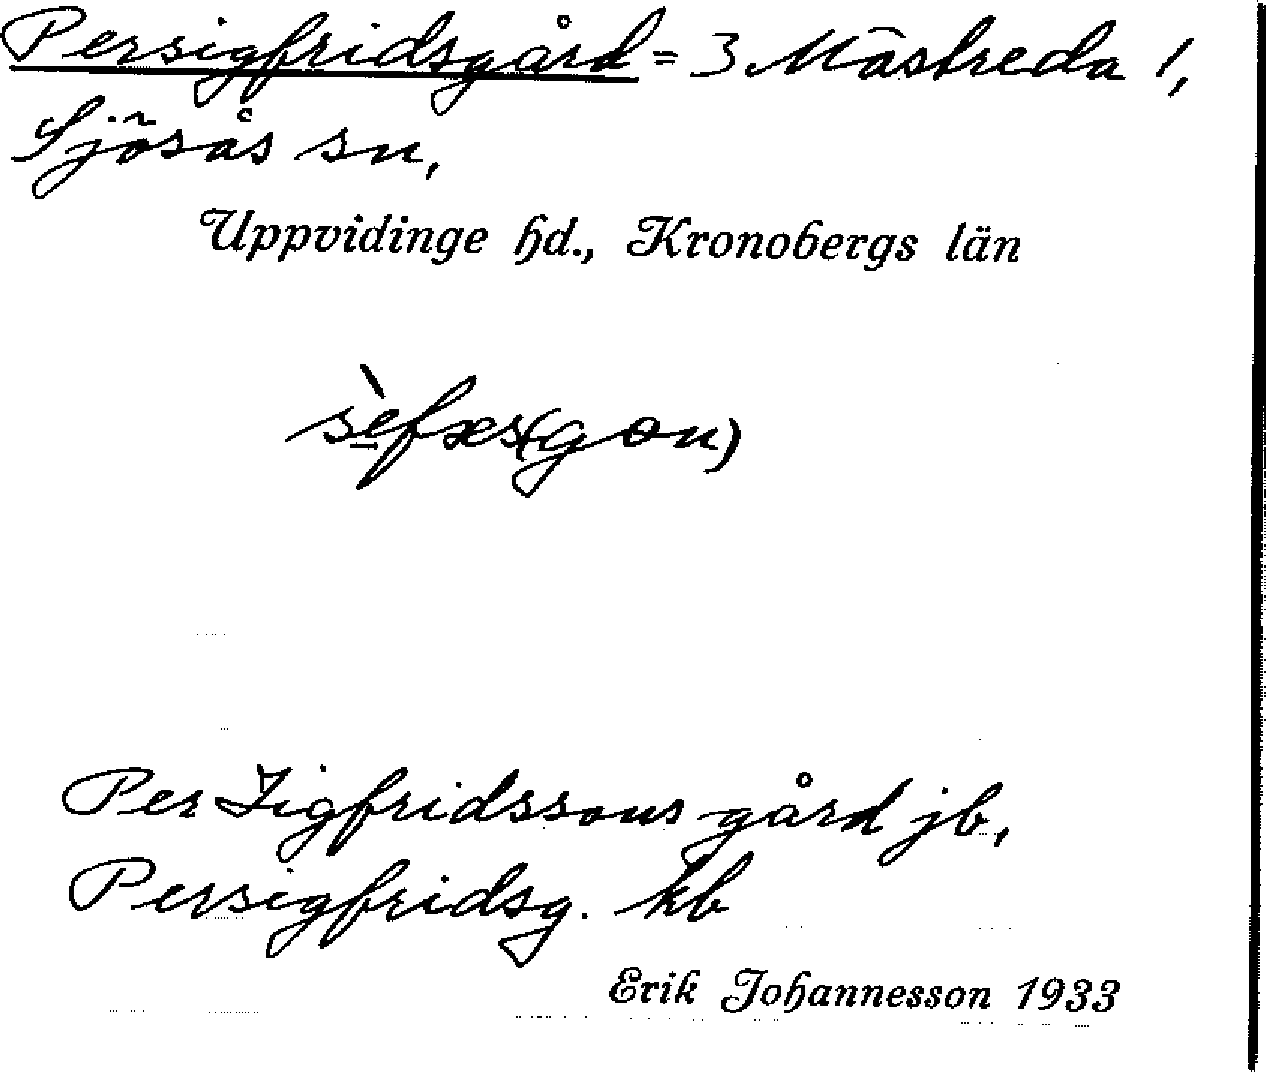 Persigfridsgård = 3 Mästreda 1,
Sjösås sn,
Uppvidinge hd., Kronobergs län
sèfxs(gon)
Per Sigfridssons gård jb,
Persigfridsg. kb
Erik Johannesson 1933